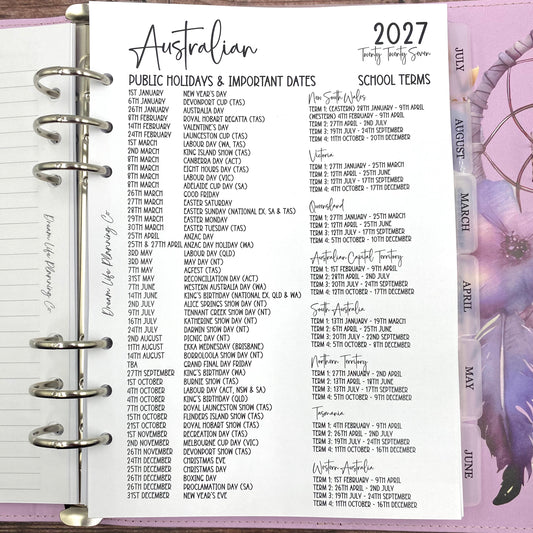 Australian
2027
Twenty Twenty Seven
PUBLIC HOLIDAYS & IMPORTANT DATES
SCHOOL TERMS
1ST JANUARY NEW YEAR'S DAY
6TH JANUARY DEVONPORT CUP (TAS)
26TH JANUARY AUSTRALIA DAY
8TH FEBRUARY ROYAL HOBART REGATTA (TAS)
14TH FEBRUARY VALENTINE'S DAY
24TH FEBRUARY LAUNCESTON CUP (TAS)
1ST MARCH LABOUR DAY (WA, TAS)
2ND MARCH KING ISLAND SHOW (TAS)
8TH MARCH CANBERRA DAY (ACT)
8TH MARCH EIGHT HOURS DAY (TAS)
8TH MARCH LABOUR DAY (VIC)
8TH MARCH ADELAIDE CUP DAY (SA)
26TH MARCH GOOD FRIDAY
27TH MARCH EASTER SATURDAY
28TH MARCH EASTER SUNDAY (NATIONAL EX. SA & TAS)
29TH MARCH EASTER MONDAY
30TH MARCH EASTER TUESDAY (TAS)
25TH APRIL ANZAC DAY
25TH & 27TH APRIL ANZAC DAY HOLIDAY (WA)
3RD MAY LABOUR DAY (QLD)
3RD MAY MAY DAY (NT)
7TH MAY AGFEST (TAS)
31ST MAY RECONCILIATION DAY (ACT)
7TH JUNE WESTERN AUSTRALIA DAY (WA)
14TH JUNE KING'S BIRTHDAY (NATIONAL EX, QLD & WA)
2ND JULY ALICE SPRINGS SHOW DAY (NT)
9TH JULY TENNANT CREEK SHOW DAY (NT)
16TH JULY KATHERINE SHOW DAY (NT)
24TH JULY DARWIN SHOW DAY (NT)
2ND AUGUST PICNIC DAY (NT)
11TH AUGUST EKKA WEDNESDAY (BRISBANE)
14TH AUGUST BORROLOOLA SHOW DAY (NT)
TBA GRAND FINAL DAY FRIDAY
27TH SEPTEMBER KING'S BIRTHDAY (WA)
1ST OCTOBER BURNIE SHOW (TAS)
4TH OCTOBER LABOUR DAY (ACT, NSW & SA)
4TH OCTOBER KING'S BIRTHDAY (QLD)
7TH OCTOBER ROYAL LAUNCESTON SHOW (TAS)
15TH OCTOBER FLINDERS ISLAND SHOW (TAS)
21ST OCTOBER ROYAL HOBART SHOW (TAS)
1ST NOVEMBER RECREATION DAY (TAS)
2ND NOVEMBER MELBOURNE CUP DAY (VIC)
26TH NOVEMBER DEVONPORT SHOW (TAS)
24TH DECEMBER CHRISTMAS EVE
25TH DECEMBER CHRISTMAS DAY
26TH DECEMBER BOXING DAY
26TH DECEMBER PROCLAMATION DAY (SA)
31ST DECEMBER NEW YEAR'S EVE
New South Wales
TERM 1: (EASTERN) 28TH JANUARY - 9TH APRIL
(WESTERN) 4TH FEBRUARY - 9TH APRIL
TERM 2: 27TH APRIL - 2ND JULY
TERM 3: 19TH JULY - 24TH SEPTEMBER
TERM 4: 11TH OCTOBER - 20TH DECEMBER
Victoria
TERM 1: 27TH JANUARY - 25TH MARCH
TERM 2: 12TH APRIL - 25TH JUNE
TERM 3: 12TH JULY - 17TH SEPTEMBER
TERM 4: 4TH OCTOBER - 17TH DECEMBER
Queensland
TERM 1: 27TH JANUARY - 25TH MARCH
TERM 2: 12TH APRIL - 25TH JUNE
TERM 3: 12TH JULY - 17TH SEPTEMBER
TERM 4: 5TH OCTOBER - 10TH DECEMBER
Australian Capital Territory
TERM 1: 1ST FEBRUARY - 9TH APRIL
TERM 2: 28TH APRIL - 2ND JULY
TERM 3: 20TH JULY - 24TH SEPTEMBER
TERM 4: 12TH OCTOBER - 16TH DECEMBER
South Australia
TERM 1: 13TH JANUARY - 19TH MARCH
TERM 2: 6TH APRIL - 25TH JUNE
TERM 3: 20TH JULY - 22ND SEPTEMBER
TERM 4: 5TH OCTOBER - 8TH DECEMBER
Northern Territory
TERM 1:
TERM 2: 13TH APRIL - 18TH JUNE
TERM 3: 13TH JULY - 17TH SEPTEMBER
TERM 4: 4TH OCTOBER - 9TH DECEMBER
Tasmania
TERM 1: 4TH FEBRUARY - 9TH APRIL
TERM 2: 26TH APRIL - 2ND JULY
TERM 3: 19TH JULY - 24TH SEPTEMBER
TERM 4: 11TH OCTOBER - 16TH DECEMBER
Western Australia
TERM 1: 1ST FEBRUARY - 9TH APRIL
TERM 2: 26TH APRIL - 2ND JULY
TERM 3: 19TH JULY - 24TH SEPTEMBER
TERM 4: 11TH OCTOBER - 16TH DECEMBER
Dream Life Planning Co
Dream Life Planning Co
JULY
AUGUST
MARCH
APRIL
MAY
JUNE